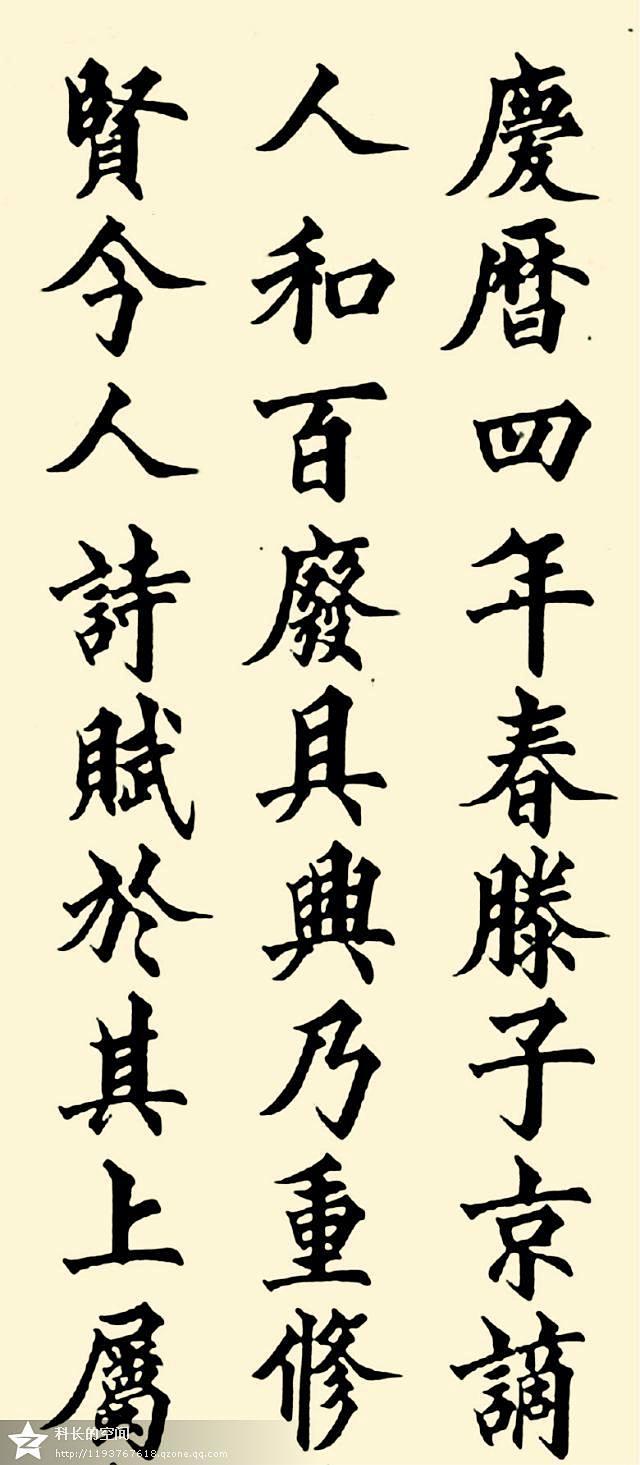 慶曆四年春滕子京謫
人和百廢具興乃重修
賢今人詩賦於其上屬
科长的空间
http://1193767618.qzone.qq.com